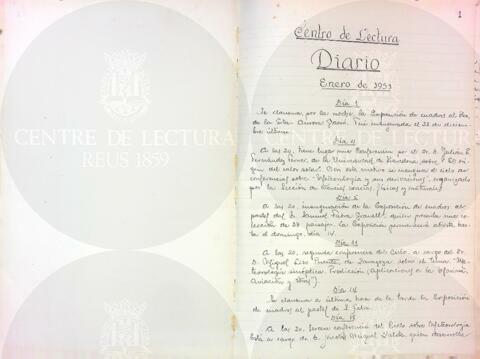 CENTRE DE LECTURA
REUS 1859
1
Centro de Lectura
Diario
Enero de 1953
Día 1
Se clausura, por la noche, la Exposición de cuadros al óleo
de la Srta. Aurora Fué inaugurada el 23 de diciem-
bre último.
Día 4
A las 20, tiene lugar una Conferencia por el Dr. D. Julián F.
Fernández Ferrer, de la Universidad de Barcelona sobre "El ori-
gen del calor solar". Con esta se inaugura el ciclo de
conferencias sobre "Meteorología y sus derivaciones", organizado
por la Sección de Ciencias exactas, físicas y naturales.
Día 5
A las 20, inauguración de la Exposición de cuadros al
pastel del S. Samuel quien presenta una co-
lección de 27 paisajes. La Exposición permanecerá abierta has-
ta el domingo, día 14.
Día 11
A las 20, segunda conferencia del Ciclo, a cargo del Dr.
D. Miguel Puente, de Zaragoza, sobre el tema: "Me-
teorología sinóptica. Predicción (Aplicaciones a la
Aviación y
Día 14
Se clausura a última hora de la tarde la Exposición
de cuadros al pastel de S.
Día 18
A las 20, tercera conferencia del Ciclo sobre Meteorología
Está a cargo de D. quien desarrolla